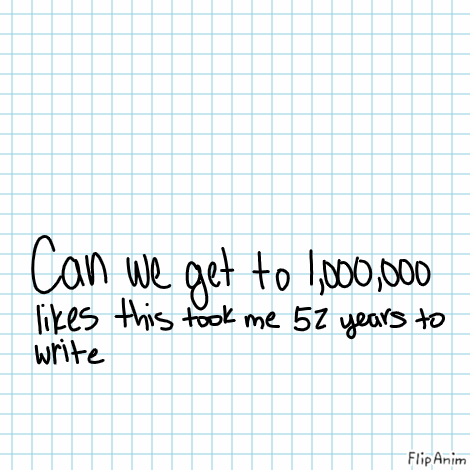 Can we get to 1,000,000
likes this took me 52 years to
write
FlipAnim